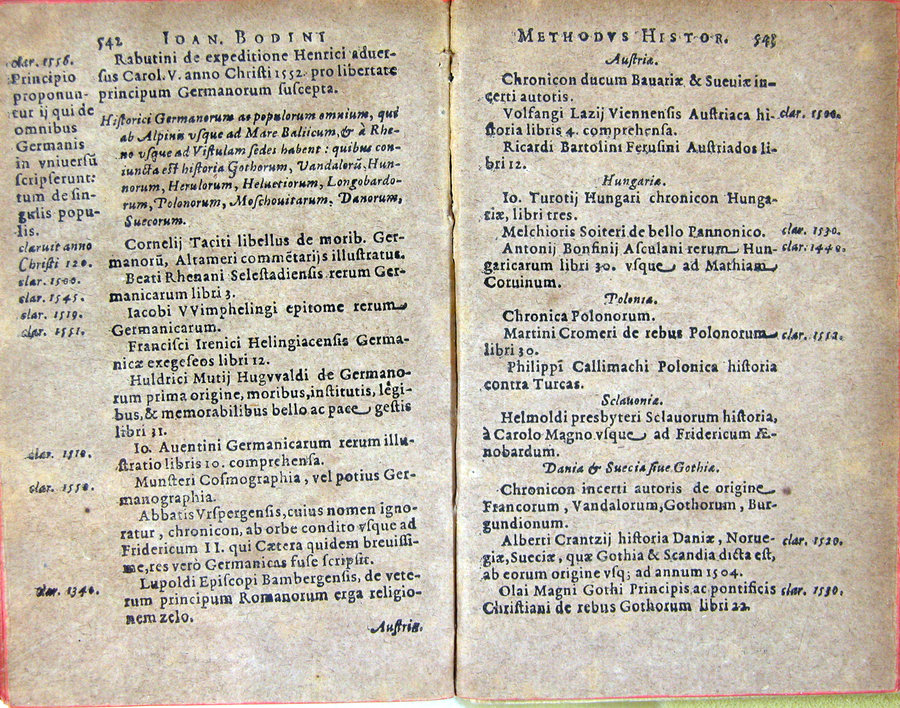 542 IOAN. BODINI
clar. 1556.
Principio
proponun-
tur ij qui de
omnibus
Germanis
in vniuersũ
scripserunt:
tum de sin-
gulis popu-
lis.
claruit anno
Christi 120.
clar. 1500.
clar. 1545.
clar. 1519.
clar. 1551.
clar. 1510.
clar. 1550.
clar. 1340.
Rabutini de expeditione Henrici aduer-
sus Carol. V. anno Christi 1552. pro libertate
principum Germanorum suscepta.
Historici Germanorum ac populorum omnium, qui
ab Alpinis vsque ad Mare Balticum, & à Rhe-
no vsque ad Vistulam sedes habent: quibus con-
iuncta est historia Gothorum, Vandalorũ, Hun-
norum, Herulorum, Heluetiorum, Longobardo-
rum, Polonorum, Moschouitarum, Danorum,
Suecorum.
Cornelij Taciti libellus de morib. Ger-
manorũ, Altameri commẽtarijs illustratus.
Beati Rhenani Selestadiensis rerum Ger-
manicarum libri 3.
Iacobi VVimphelingi epitome rerum
Germanicarum.
Francisci Irenici Helingiacensis Germa-
nicæ exegeseos libri 12.
Huldrici Mutij Hugvvaldi de Germano-
rum prima origine, moribus, institutis, legi-
bus, & memorabilibus bello ac pace gestis
libri 31.
Io. Auentini Germanicarum rerum illu-
stratio libris 10. comprehensa.
Munsteri Cosmographia, vel potius Ger-
manographia.
Abbatis Vrspergensis, cuius nomen igno-
ratur, chronicon, ab orbe condito vsque ad
Fridericum II. qui Cætera quidem breuissi-
me, res verò Germanicas fuse scripsit.
Lupoldi Episcopi Bambergensis, de vete-
rum principum Romanorum erga religio-
nem zelo.
Austriæ.
METHODVS HISTOR. 543
Austriæ.
Chronicon ducum Bauariæ & Sueuiæ in-
certi autoris.
Volfangi Lazij Viennensis Austriaca hi- clar. 1500.
storia libris 4. comprehensa.
Ricardi Bartolini Ferusini Austriados li-
bri 12.
Hungariæ.
Io. Turotij Hungari chronicon Hunga-
riæ, libri tres.
Melchioris Soiteri de bello Pannonico. clar. 1530.
Antonij Bonfinij Asculani rerum Hun- clar. 1440.
garicarum libri 30. vsque ad Mathiam
Coruinum.
Poloniæ.
Chronica Polonorum.
Martini Cromeri de rebus Polonorum clar. 1552.
libri 30.
Philippi Callimachi Polonica historia
contra Turcas.
Sclauoniæ.
Helmoldi presbyteri Sclauorum historia,
à Carolo Magno vsque ad Fridericum Æ-
nobardum.
Dania & Suecia siue Gothia.
Chronicon incerti autoris de origine
Francorum, Vandalorum, Gothorum, Bur-
gundionum.
Alberti Crantzij historia Daniæ, Norue- clar. 1520.
giæ, Sueciæ, quæ Gothia & Scandia dicta est,
ab eorum origine vsq; ad annum 1504.
Olai Magni Gothi Principis ac pontificis clar. 1530.
Christiani de rebus Gothorum libri 22.